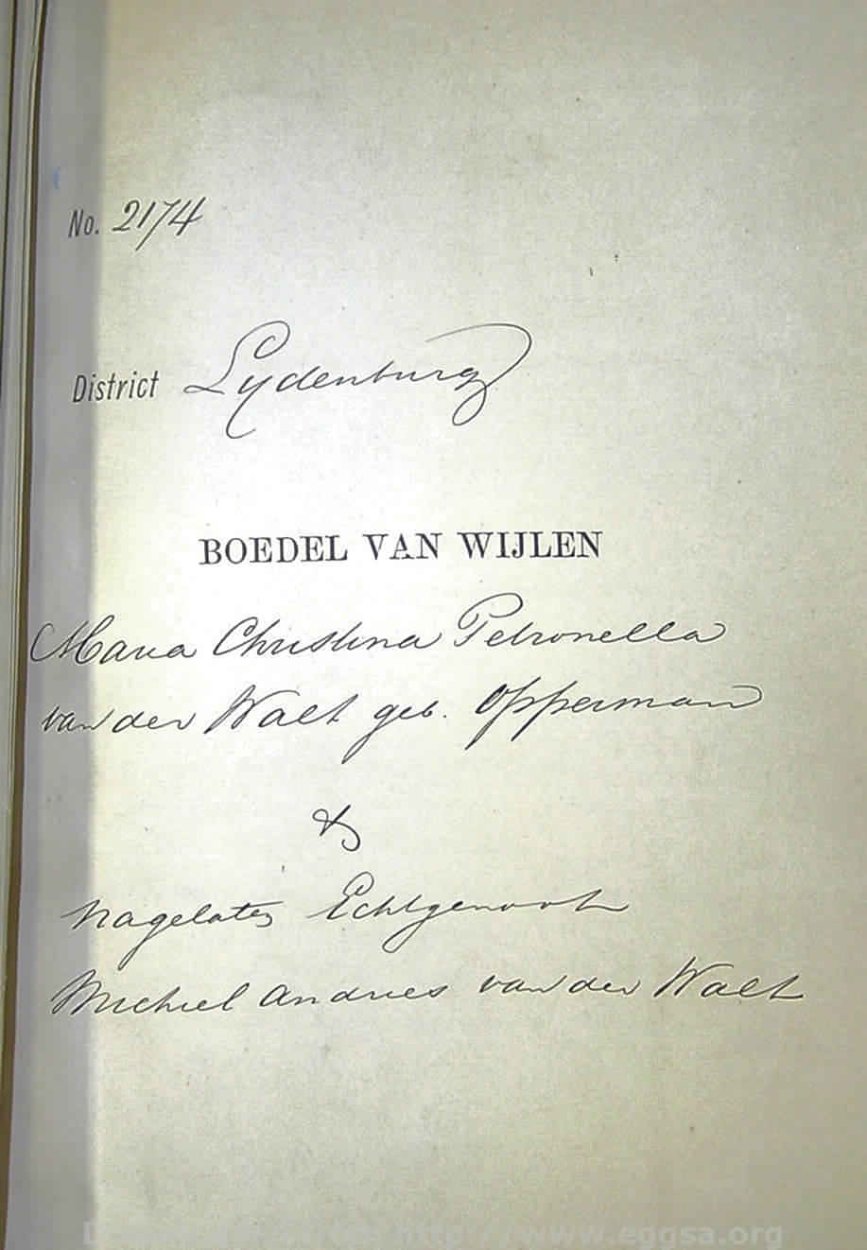 No. 2174
District Lydenburg
BOEDEL VAN WIJLEN
Maria Christina Petronella
van der Walt geb. Opperman
&
nagelaten Echtgenoot
Michiel Andries van der Walt
http://www.eggsa.org